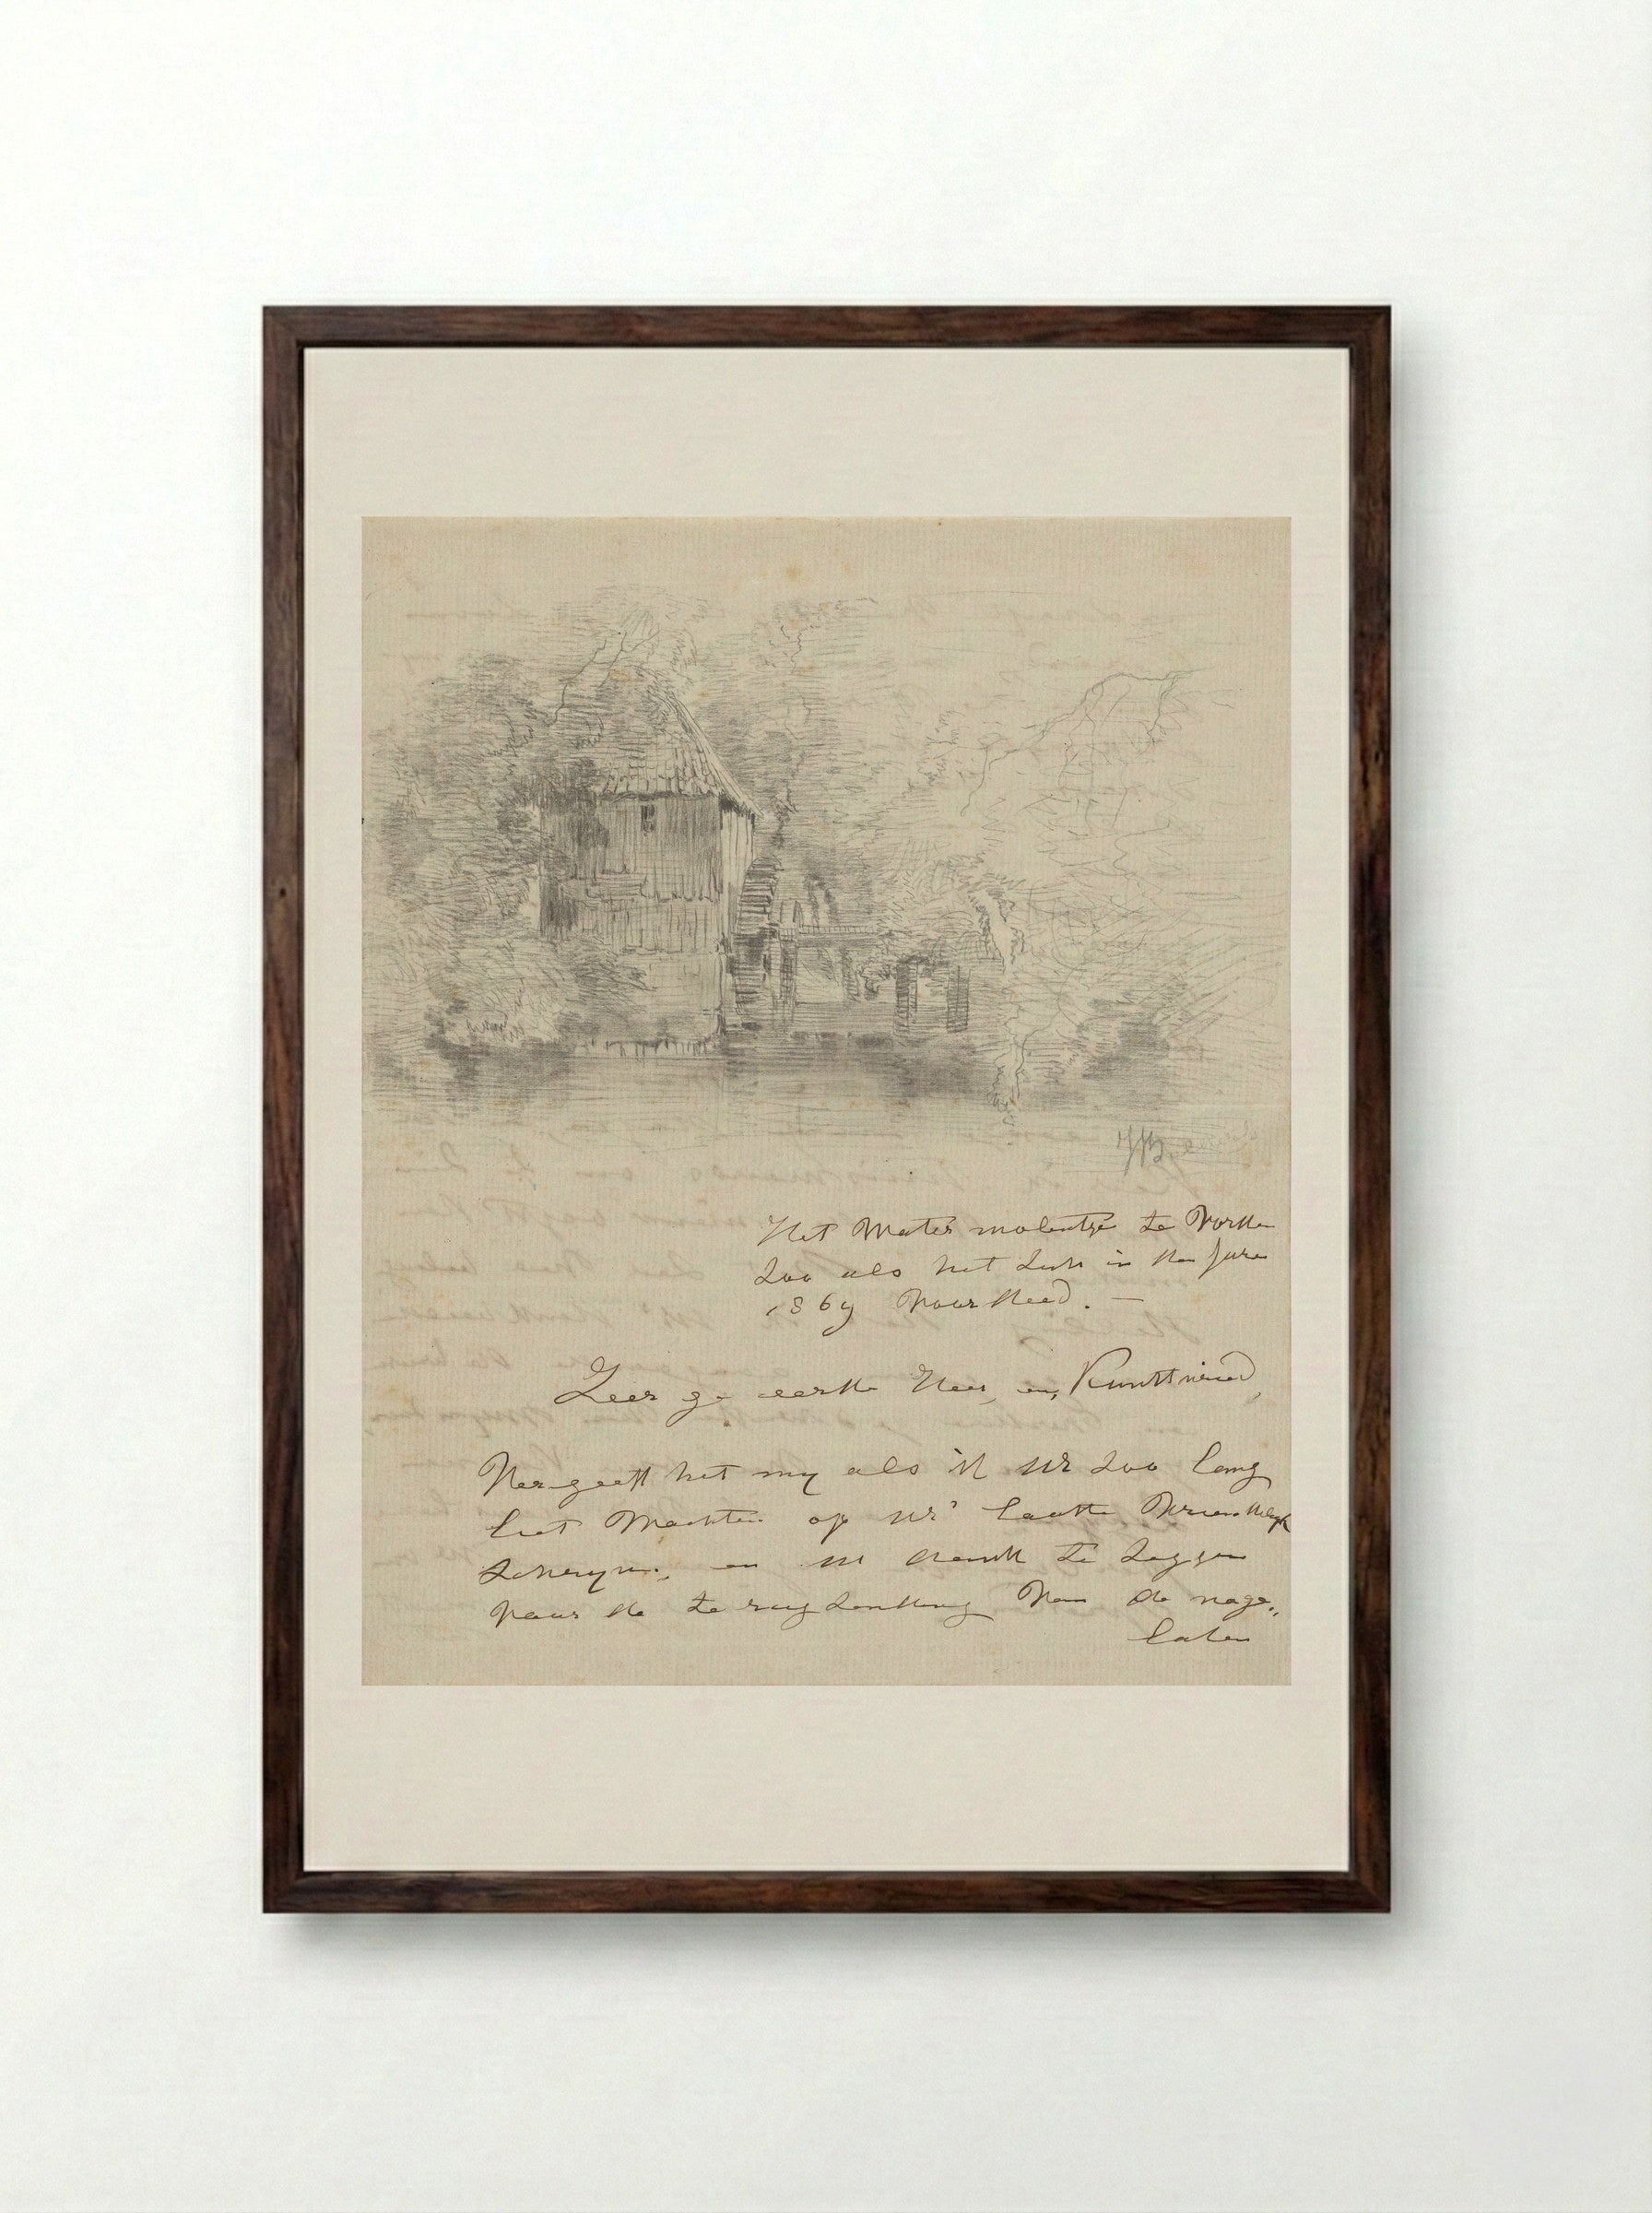 Het Water molentje te Vorden
Zoo als het Zich in den Jare
1869 Voordeed. —
Zeer ge eerde Heer, en, Kunstvriend,
Vergeeft het my als ik UE Zoo lang
liet Wachten op UE' laatste Vriendelyk
Schryven, en UE dank te Zeggen
voor de te rug Zending Van de nage„
laten